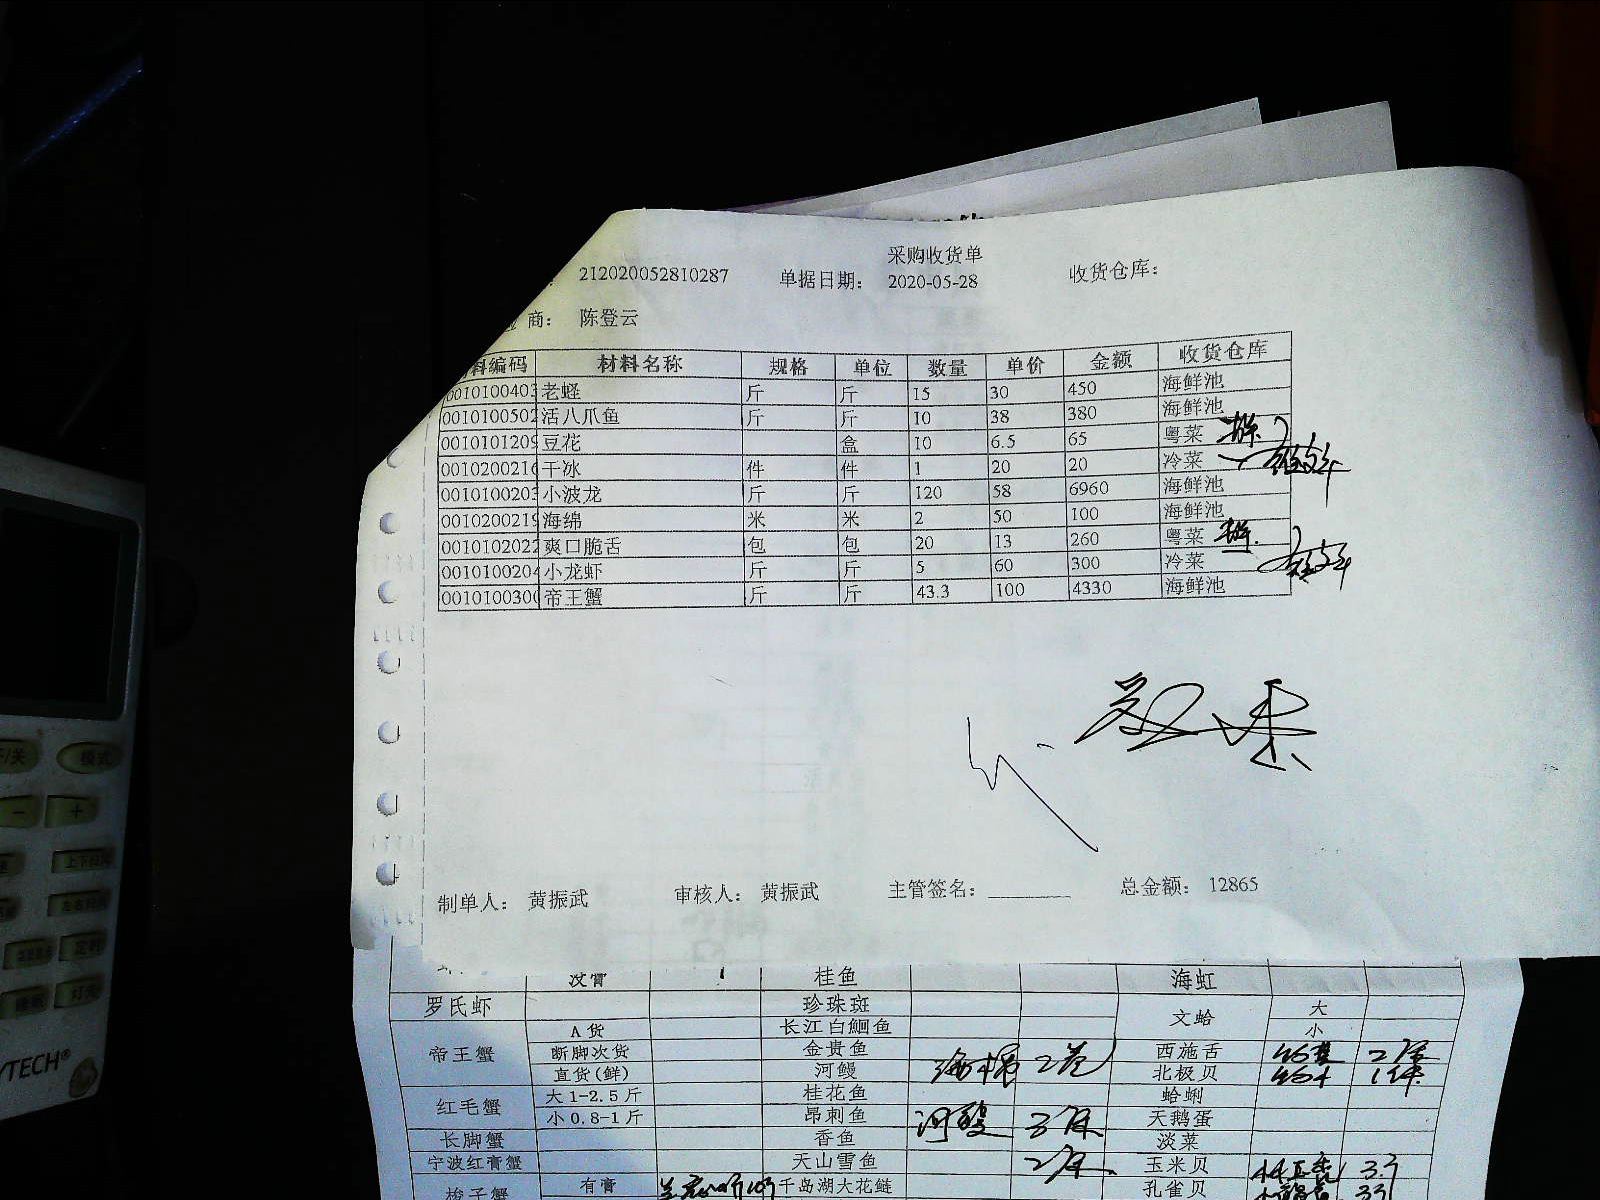 采购收货单
212020052810287 单据日期： 2020-05-28 收货仓库：
商： 陈登云
料编码 材料名称 规格 单位 数量 单价 金额 收货仓库
0010100403 老蛏 斤 斤 15 30 450 海鲜池
0010100502 活八爪鱼 斤 斤 10 38 380 海鲜池
0010101209 豆花 盒 10 6.5 65 粤菜
0010200216 干冰 件 件 1 20 20 冷菜
0010100203 小波龙 斤 斤 120 58 6960 海鲜池
0010200219 海绵 米 米 2 50 100 海鲜池
0010102022 爽口脆舌 包 包 20 13 260 粤菜
0010100204 小龙虾 斤 斤 5 60 300 冷菜
0010100300 帝王蟹 斤 斤 43.3 100 4330 海鲜池
制单人： 黄振武 审核人： 黄振武 主管签名： 总金额： 12865
没膏 桂鱼 海虹
罗氏虾 珍珠斑 文蛤 大
A货 长江白鮰鱼 小
帝王蟹 断脚次货 金贵鱼 西施舌
直货(鲜) 河鳗 北极贝
红毛蟹 大1-2.5斤 桂花鱼 蛤蜊
小0.8-1斤 昂刺鱼 天鹅蛋
长脚蟹 香鱼 淡菜
宁波红膏蟹 天山雪鱼 玉米贝
梭子蟹 有膏 千岛湖大花鲢 孔雀贝
模式
− +
定时
灯光
YTECH®